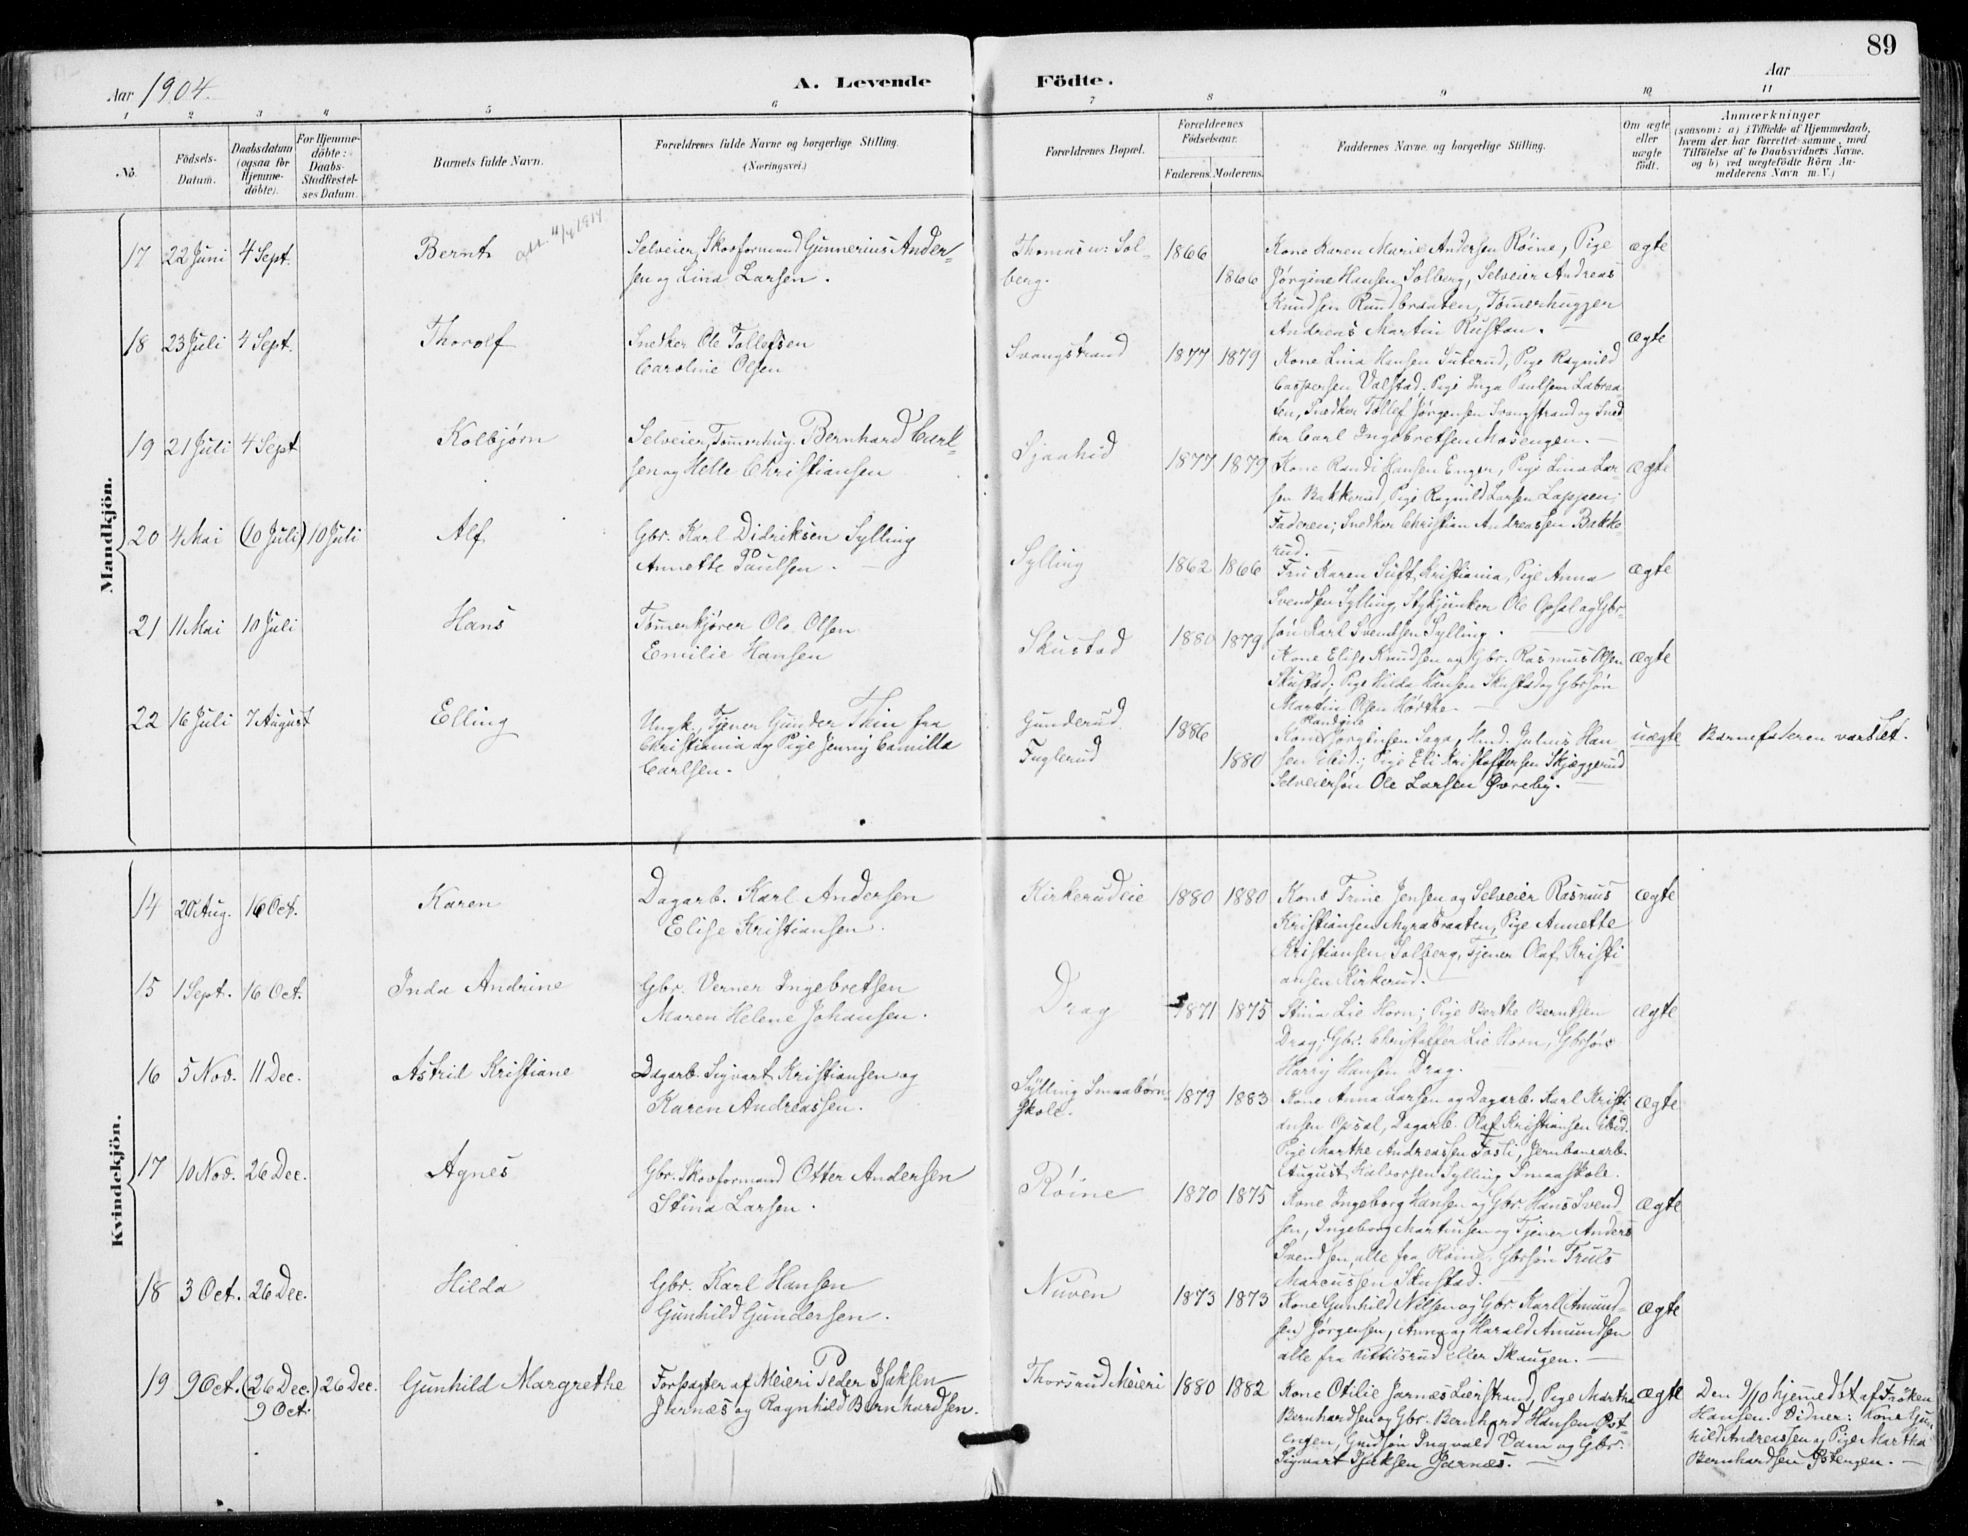 89
Aar 1904.
A. Levende Födte.
Aar
1 2 3 4 5 6 7 8 9 10 11
No.
Födsels-
Datum.
Daabsdatum
(ogsaa for
Hjemme-
döbte).
For Hjemme-
döbte:
Daabs-
Stadfæstel-
ses Datum.
Barnets fulde Navn.
Forældrenes fulde Navne og borgerlige Stilling.
(Næringsvei.)
Forældrenes Bopæl.
Forældrenes
Födselsaar.
Faderens. Moderens.
Faddernes Navne og borgerlige Stilling.
Om ægte
eller
uægte
födt.
Anmærkninger
(saasom: a) i Tilfælde af Hjemmedaab,
hvem der har forrettet samme, med
Tilföielse af to Daabsvidners Navne,
og b) ved uægtefödte Börn An-
melderens Navn m. V.)
Mandkjön.
17 22 Juni 4 Sept. Bernt
Selveier, Skovformand Gunnerius Ander-
sen og Lina Larsen.
Sol-
berg.
1866
1866
Kone Karen Marie Andersen Røine, Pige
Jørgine Hansen Solberg, Selveier Andreas
Knudsen Rundbraaten, Tømmerhugger
Andreas Martin Rustan.
ægte
18 23 Juli 4 Sept. Thorolf
Snedker Ole Tollefsen
Caroline Olsen
Svangstrand
1877 1879
Kone Lina Hansen Suterud, Pige Ragnild
Caspersen Valstad, Pige Inga Paulsen
sen, Snedker Tollef Jørgensen Svangstrand og Sned
ker Carl Ingebretsen Mosengen.
ægte
19 21 Juli 4 Sept Kolbjørn
Selveier, Tømmerhug. Bernhard Carl-
sen og Helle Christiansen
1877 1879
Kone Randi Hansen Enger, Pige Lina Lar-
sen Bakkerud, Pige Ragnild Larsen Lappen,
Faderen, Snedker Christian Andreassen Bakke
rud.
ægte
20 4 Mai (10 Juli) 10 Juli Alf
Gbr. Karl Didriksen Sylling
Annette Paulsen.
Sylling
1862 1866
Fru Karen Kristiania, Pige Anna
Svendsen Sylling, Ole Opsal og Gbr-
søn Karl Svendsen Sylling.
ægte
21 11 Mai 10 Juli Hans
Tømmerkjører Ole Olsen
Emilie Hansen
Skustad
1880 1879
Kone Elise Knudsen og Gbr. Rasmus Olsen
Skustad, Pige Hilda Hansen Skustad og Gbrsøn
Martin Olsen Hørthe.
ægte
22 16 Juli 7 August Elling
Ungk., Tjener Gunder Thin fra
Christiania og Pige Jenny Camilla
Carlsen.
Gunderud
Fuglerud
1886
1880
Kone Jørginesen Saga, Ind. Julius Han
sen ibid.; Pige Eli Kristoffersen Skjæggerud
Selveiersøn Ole Larsen Øvreby.
uægte
Barnefaderen
Kvindekjön.
14 20 Aug. 16 Oct. Karen
Dagarb. Karl Andersen
Elise Kristiansen.
Kirkerudeie
1880 1880
Kone Trine Jensen og Selveier Rasmus
Kristiansen Myrabraaten, Pige Annette
Kristiansen Solberg, Tjener Olaf Kristi-
ansen Kirkerud.
ægte
15 1 Sept. 16 Oct. Inda Andrine
Gbr. Verner Ingebretsen
Maren Helene Johansen.
Drag
1871 1875
Stina Lie Horn; Pige Berthe Berntsen
Drag, Gbr. Christoffer Lie Horn, Gbrsøn
Harry Hansen Drag.
ægte
16 5 Nov. 11 Dec. Astrid Kristiane
Dagarb. Sigvart Kristiansen og
Karen Andreassen.
Sylling Smaabørn-
skole.
1879 1883
Kone Anna Larsen og Dagarb. Karl Kristi
ansen Opsal, Dagarb. Olaf Kristiansen ibid.
Pige Marthe Andreassen Fosli, Jernbanearb.
August Halvorsen Sylling Smaaskole.
ægte
17 10 Nov. 26 Dec. Agnes
Gbr. Skovformand Otter Andersen
Stina Larsen.
Røine
1870 1875
Kone Ingeborg Hansen og Gbr. Hans Svend
sen, Ingeborg Martinsen og Tjener Anders
Svendsen, alle fra Røine. Gbrsøn Truls
Marcussen Skustad.
ægte
18 3 Oct. 26 Dec. Hilda
Gbr. Karl Hansen
Gunhild Gundersen.
Nuven
1873 1873
Kone Gunhild Nilsen og Gbr. Karl (Amund-
sen) Jørgensen, Anna og Harald Amundsen
alle fra Kittilsrud eller Skaugen.
ægte
19 9 Oct. (26 Dec.) 26 Dec. Gunhild Margrethe
9 Oct.
Forpagter af Meieri Peder Isaksen
Jarnæs og Ragnhild Bernhardsen.
Thorsrud Meieri
1880 1882
Kone Otilie Jarnæs Lierstrand, Pige Martha
Bernhardsen og Gbr. Bernhard Hansen Øst-
engen, Gaardsøn Ingvald Dam og Gbr.
Sigvart Isaksen Jarnæs.
ægte
Den 9/10 hjemedøbt af Frøken
Hansen. Vidner: Kone Gun
hild Andreassen og Pige Martha
Bernhardsen Østengen.